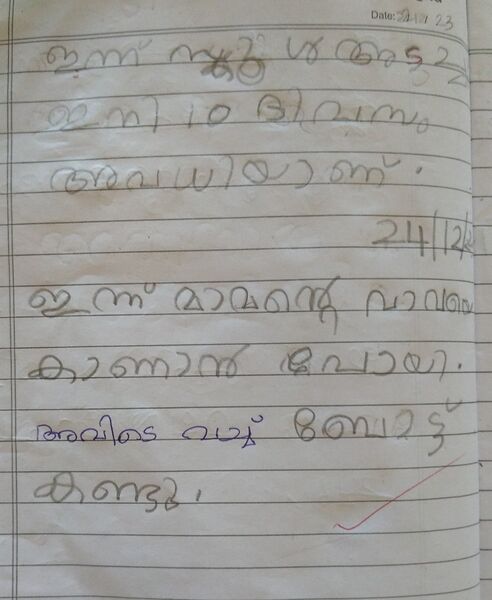 Date: 22/12/23
ഇന്ന് സ്കൂൾ അടച്ചു
ഇനി 10 ദിവസം
അവധിയാണ്.
24/12/
ഇന്ന് മാമന്റെ വാവയെ
കാണാൻ പോയി.
അവിടെ വച്ച് ബോട്ട്
കണ്ടു.